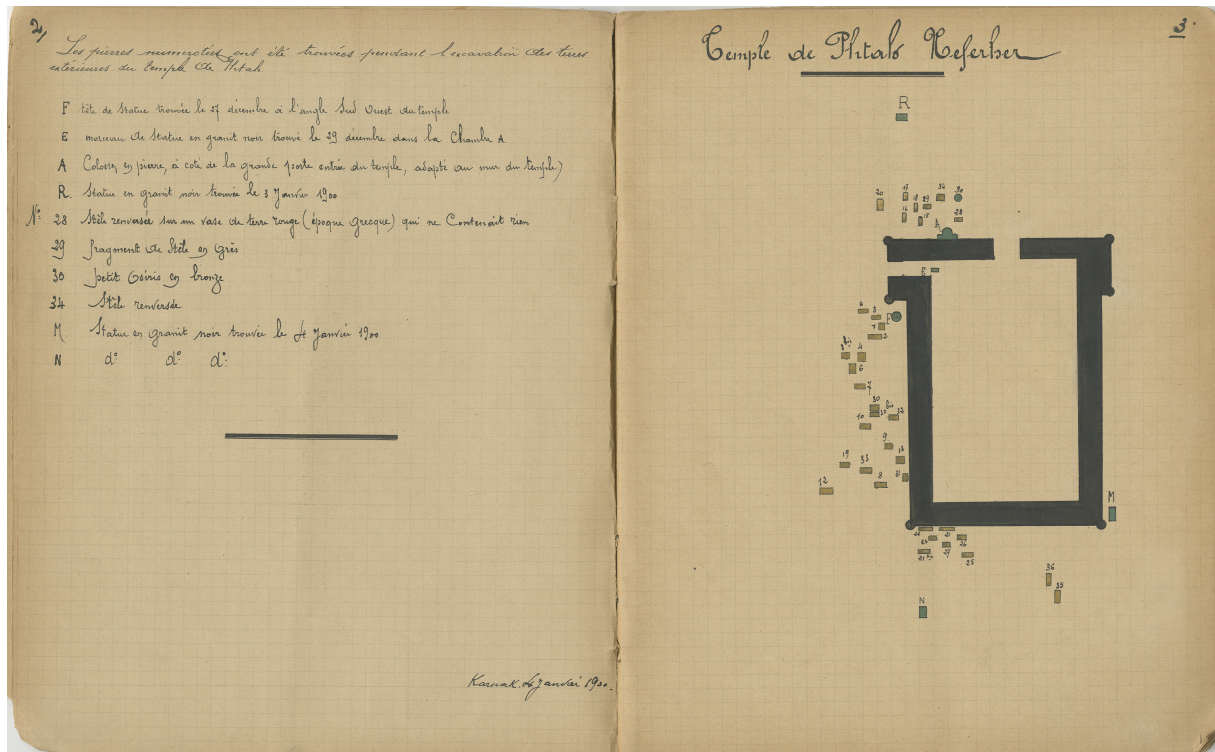 2,
Les pierres numerotées ont été trouvées pendant l'excavation des terres
extérieures du temple de Phtah.
F tête de Statue trouvée le 27 décembre à l'angle Sud Ouest du temple
E morceau de Statue en granit noir trouvé le 29 décembre dans la Chambre A
A Colosse, en pierre, à coté de la grande porte entrée du temple, adapté au mur du temple)
R. Statue en granit noir trouvée le 3 Janvier 1900
N.° 28 Stèle renversée sur un vase de terre rouge (époque Grecque) qui ne Contenait rien
29 fragment de Stèle en Grès
30 petit Osiris en bronze
34 Stèle renversée
M Statue en granit noir trouvée le 4 Janvier 1900
N d° d° d°
Karnak. 4 Janvier 1900.
3.
Temple de Phtah Neferher
R
20 17 18 29 34 30
16 15 28
A
E
6 3 F
1 2
4
6
7
30
10 13
9
19 33 13
8 31
12
M
22 21
24 26
27
25
36
35
N